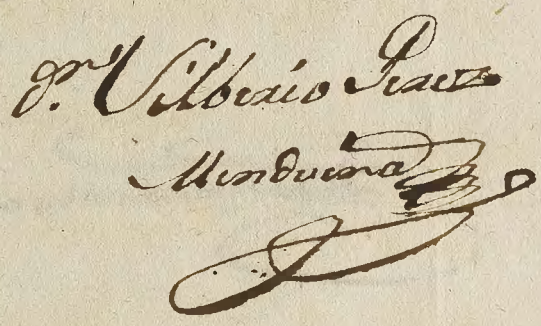 Silberio Perez
Menduena